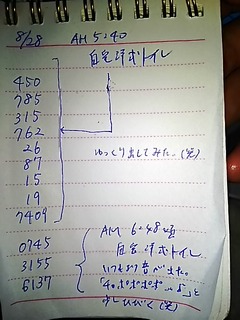 8/28 AM 5:40
自宅洋式トイレ
450
785
315
762
26
87
15
19
7409
ゆっくり出してみた。(笑)
AM 6:48頃
自宅洋式トイレ
0745
3155
6137
いつもより音が出た。
「ポポポポ
少しひびく(笑)